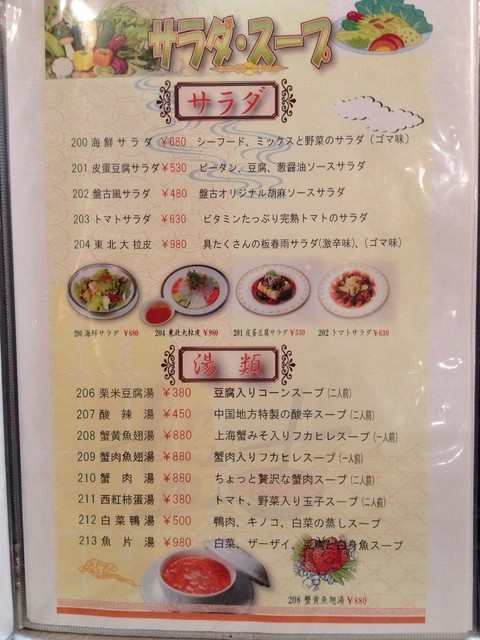 サラダ・スープ
サラダ
200 海鮮サラダ ￥680 シーフード、ミックスと野菜のサラダ（ゴマ味）
201 皮蛋豆腐サラダ ￥530 ピータン、豆腐、葱醤油ソースサラダ
202 盤古風サラダ ￥480 盤古オリジナル胡麻ソースサラダ
203 トマトサラダ ￥630 ビタミンたっぷり完熟トマトのサラダ
204 東北大拉皮 ￥980 具たくさんの板春雨サラダ(激辛味)、（ゴマ味）
200 海鮮サラダ ￥680 204 東北大拉皮 ￥980 201 皮蛋豆腐サラダ ￥530 202 トマトサラダ ￥630
湯類
206 栗米豆腐湯 ￥380 豆腐入りコーンスープ（二人前）
207 酸辣湯 ￥450 中国地方特製の酸辛スープ（二人前）
208 蟹黄魚翅湯 ￥880 上海蟹みそ入りフカヒレスープ（一人前）
209 蟹肉魚翅湯 ￥880 蟹肉入りフカヒレスープ（一人前）
210 蟹肉湯 ￥880 ちょっと贅沢な蟹肉スープ（二人前）
211 西紅柿蛋湯 ￥380 トマト、野菜入り玉子スープ（二人前）
212 白菜鴨湯 ￥500 鴨肉、キノコ、白菜の蒸しスープ
213 魚片湯 ￥980 白菜、ザーザイ、豆腐と白身魚スープ
208 蟹黄魚翅湯 ￥880